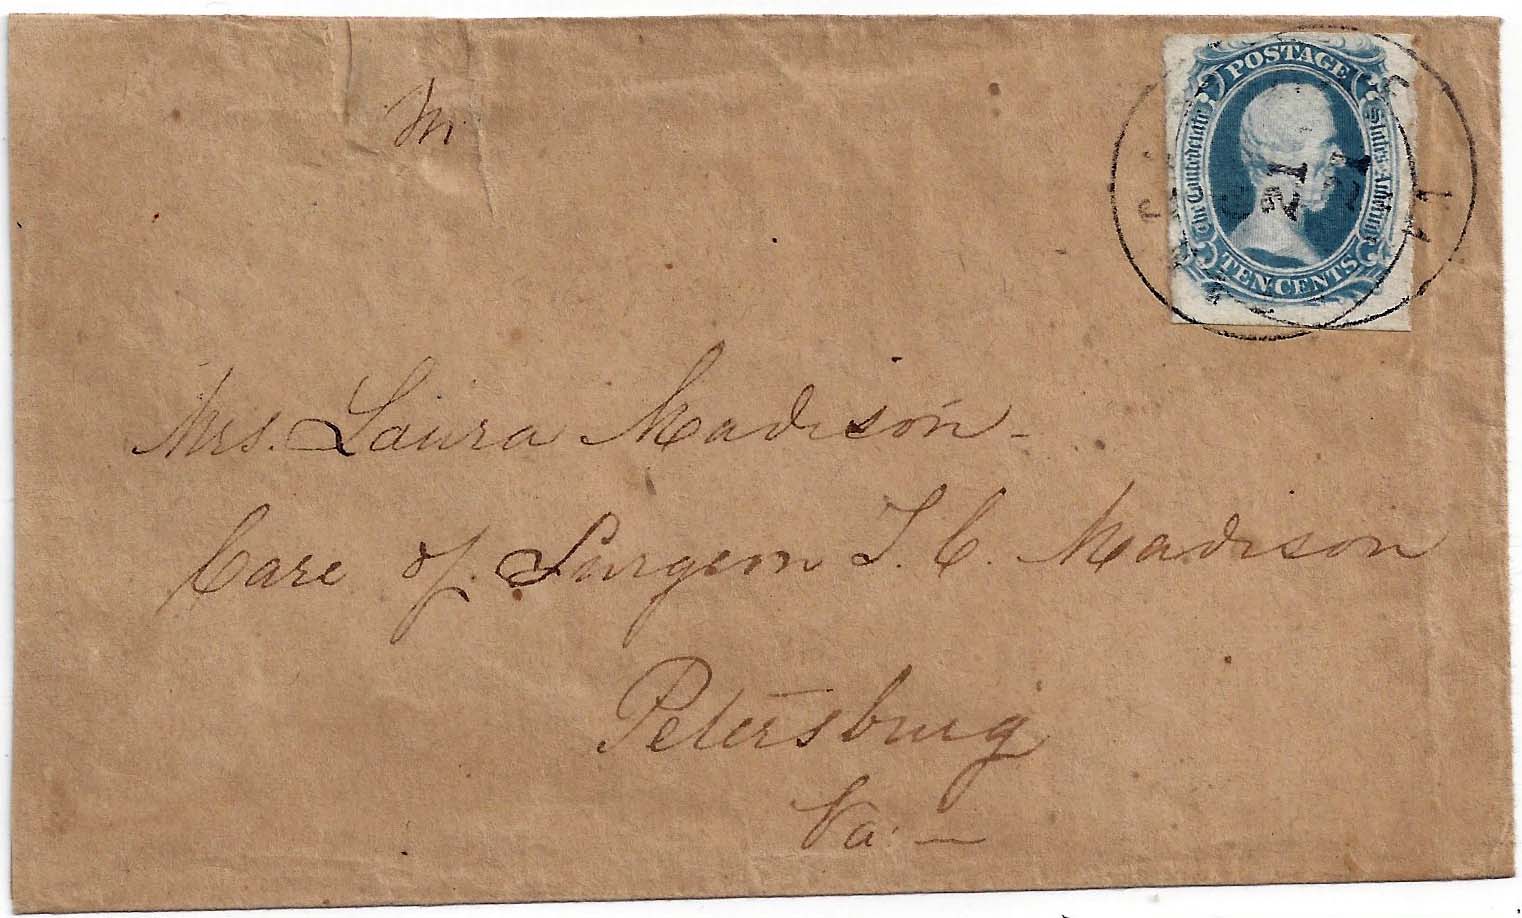 POSTAGE
The Confederate States of America
TEN CENTS
21
21
VA
Mrs. Laura Madison -
Care of Surgeon J. C. Madison
Petersburg
Va. —